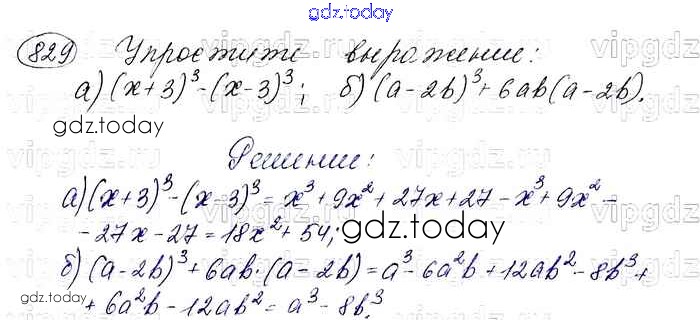 gdz.today
829 Упростите выражение:
а) (x+3)³-(x-3)³; б) (a-2b)³+6ab(a-2b).
gdz.today
Решение:
а) (x+3)³-(x-3)³=x³+9x²+27x+27-x³+9x²-
-27x-27=18x²+54;
gdz.today
б) (a-2b)³+6ab·(a-2b)=a³-6a²b+12ab²-8b³+
+6a²b-12ab²=a³-8b³.
gdz.today